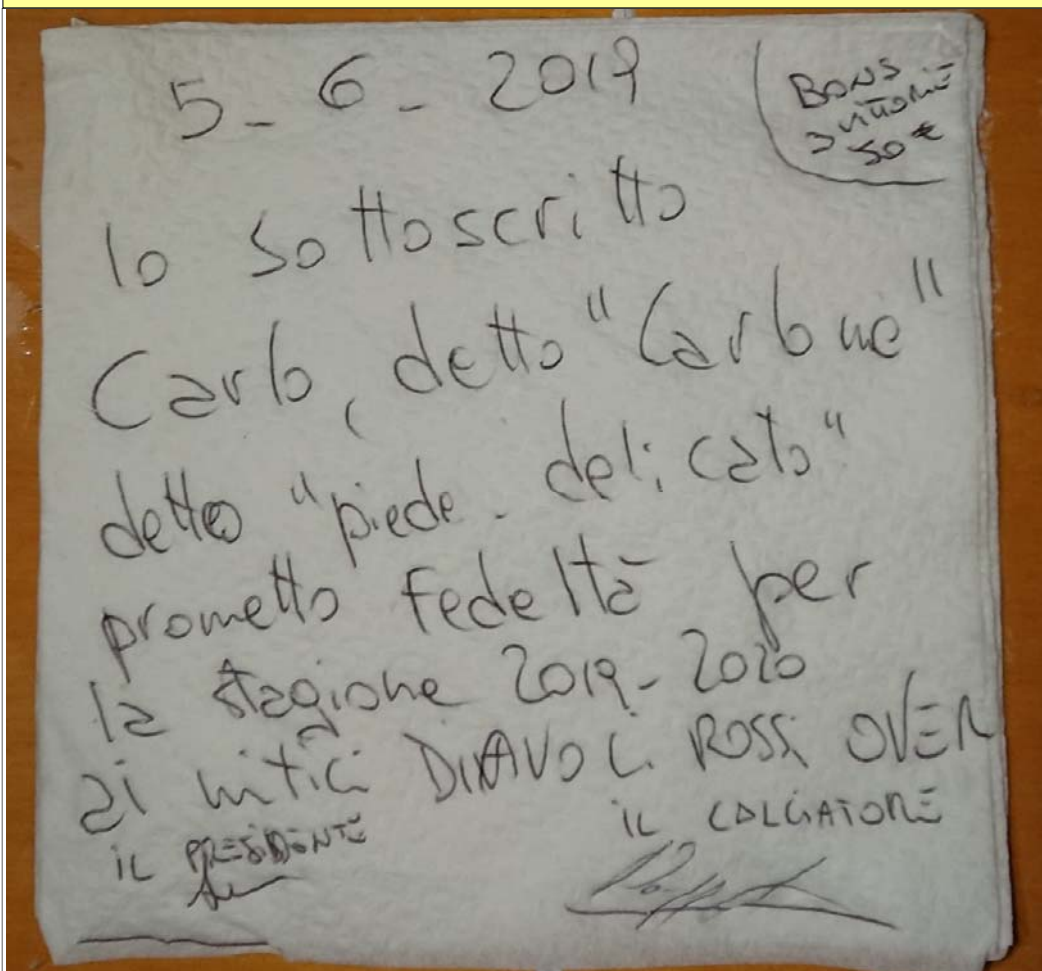 5_ 6_ 2019
BONS
3 VITTORIE
50 €
Io Sottoscritto
Carlo, detto "Carbone"
detto "piede delicato"
prometto Fedeltà per
la stagione 2019-2020
ai mitici DIAVOLI ROSSI OVER
IL PRESIDENTE
IL CALCIATORE